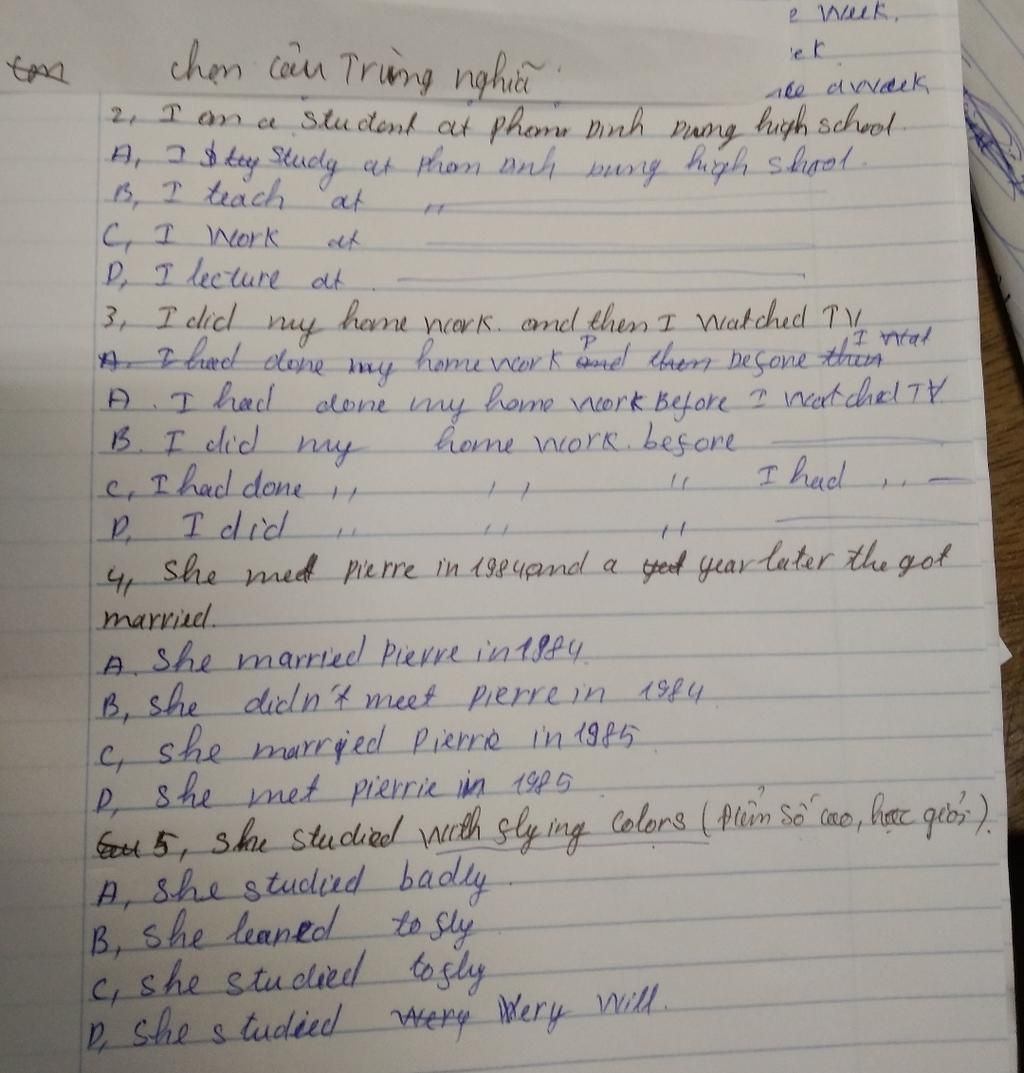 e week,
ek
ce a week
chọn câu Trùng nghĩa
2, I am a student at Pham Dinh Dung high school.
A, I study at Pham Dinh Dung high shool.
B, I teach at "
C, I Work at
D, I lecture at
3, I did my home work. and then I watched TV
A. I had done my home work and then before then I wat
A. I had done my home work Before I watched TV
B. I did my home work. before
C, I had done " " " I had "
D, I did " " "
4, She met pierre in 1984 and a year later the got
married.
A. She married Pierre in 1984.
B, she didn't meet pierre in 1984.
C, she married Pierre in 1985.
D, she met pierrie in 1985
5, She studied with flying colors (Điểm số cao, học giỏi).
A, she studied badly.
B, she leaned to fly
C, she studied to fly
D, she studied Very Will.